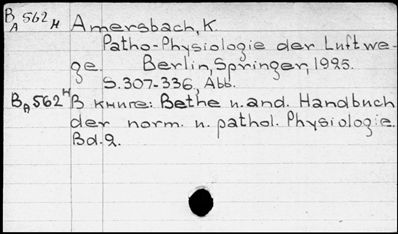 BA 562 H Amersbach, K.
Patho-Physiologie der Luftwe-
ge. Berlin, Springer, 1925.
S. 307-336, Abb.
BA 562 H В книге: Bethe u. and. Handbuch
der norm. u. pathol. Physiologie.
Bd. 2.